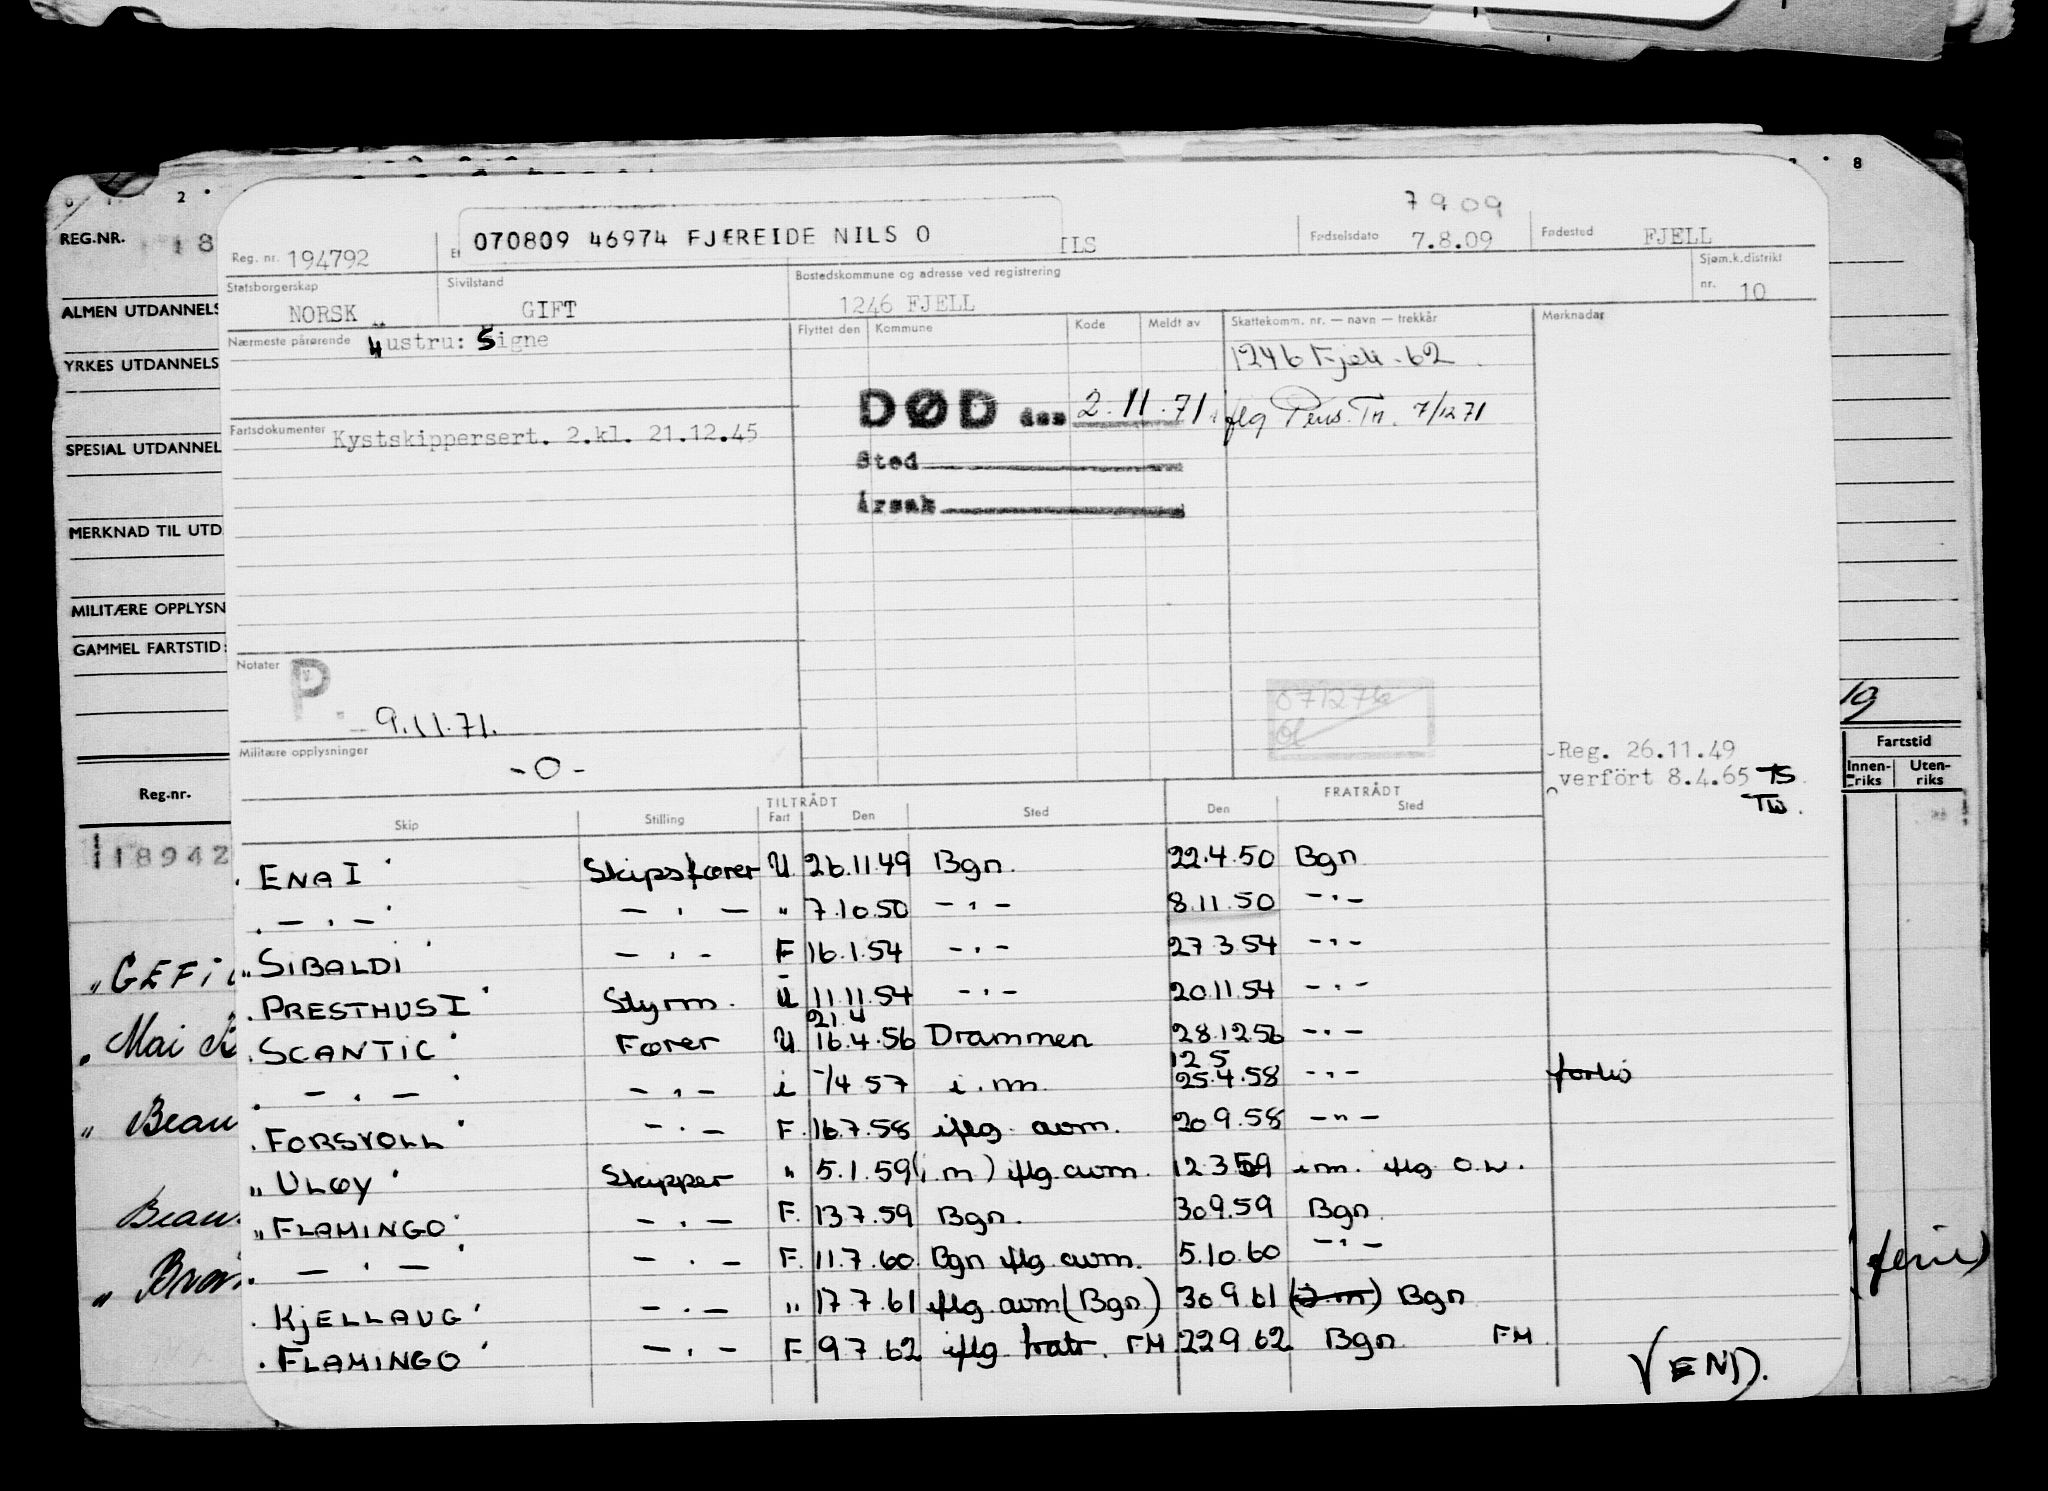 2 8
REG.NR. 18
ALMEN UTDANNELS
YRKES UTDANNELS
SPESIAL UTDANNEL
MERKNAD TIL UTD
MILITÆRE OPPLYSN
GAMMEL FARTSTID:
Reg.nr.
118942
"GEFi
Mai
" Beau
Beau
19
Fartstid
Innen-riks Uten-riks
ferie)
7 9 09
Reg. nr. 194792 070809 46974 FJÆREIDE NILS O ILS Fødselsdato 7.8.09 Fødested FJELL
Statsborgerskap NORSK Sivilstand GIFT Bostedskommune og adresse ved registrering 1246 FJELL Sjøm.k.distrikt nr. 10
Nærmeste pårørende Hustru: Signe Flyttet den Kommune Kode Meldt av Skattekomm. nr. — navn — trekkår Merknader
1246 Fjell - 62
DØD den 2.11.71. iflg Pens. Tr. 7/12 71
Fartsdokumenter Kystskippersert. 2.kl. 21.12.45
Sted
Årsak
Notater P.
9.11.71.
071276
Militære opplysninger -0-
Reg. 26.11.49
overført 8.4.65 TS
TW.
TILTRÅDT FRATRÅDT
Skip Stilling Fart Den Sted Den Sted
ENA I Skipsfører U 26.11.49 Bgn. 22.4.50 Bgn
— " — — " — " 7.10.50 — " — 8.11.50 — " —
SIBALDI — " — F 16.1.54 — " — 27.3.54 — " —
PRESTHUS I Styrm. U 11.11.54 — " — 20.11.54 — " —
21.4
SCANTIC Fører U 16.4.56 Drammen 28.12.56 — " —
12.5
— " — — " — i -/4 57 i.m. 25.4.58 — " — forlis
FORSVOLL — " — F. 16.7.58 iflg. avm. 20.9.58 — " —
" ULØY Skipper " 5.1.59 (i.m) iflg. avm. 12.3.59 i.m. iflg O.W.
" FLAMINGO — " — F. 13.7.59 Bgn. 30.9.59 Bgn.
— " — — " — F. 11.7.60 Bgn iflg. avm. 5.10.60 — " —
KJELLAUG — " — " 17.7.61 iflg. avm (Bgn) 30.9.61 (i.m) Bgn
FLAMINGO — " — F 9.7.62 iflg. fratr. FM 22.9.62 Bgn FM
VEND.